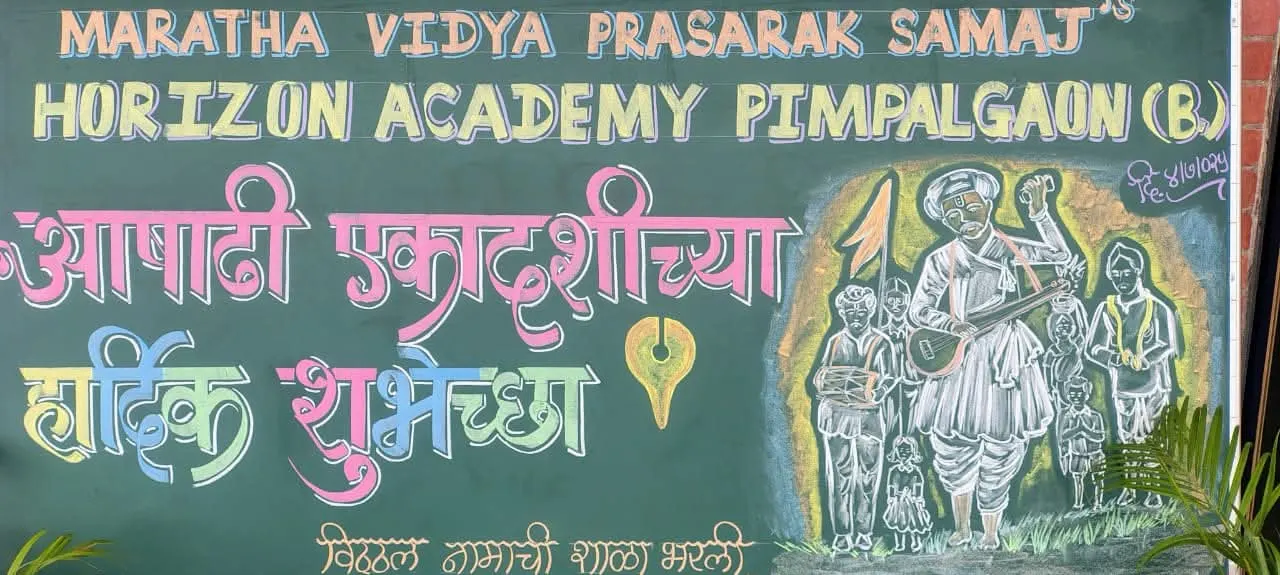 MARATHA VIDYA PRASARAK SAMAJ'S
HORIZON ACADEMY PIMPALGAON (B.)
दि. ४/७/०२५
आषाढी एकादशीच्या
हार्दिक शुभेच्छा
विठ्ठल नामाची शाळा भरली